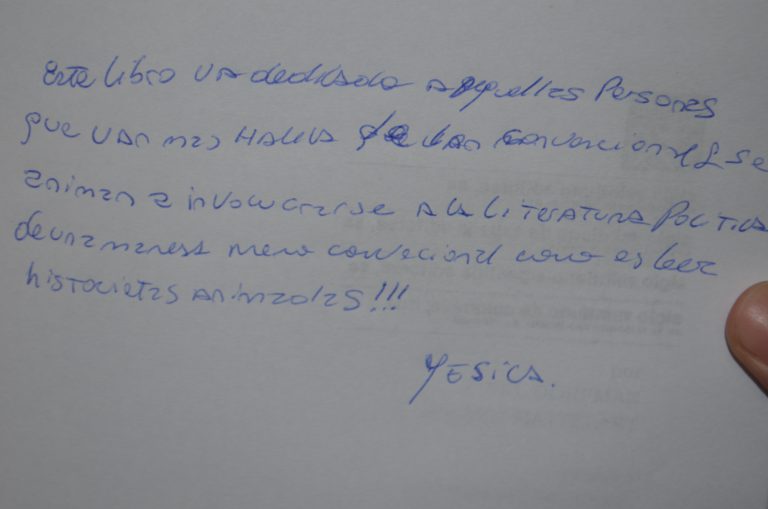 Este libro va dedicado a aquellas Personas
que van mas HALLA de lo convencional & se
animan a involucrarse A la LITERATURA POLITICA
de una manera menos convecional como es leer
historietas animadas!!!
YESICA.